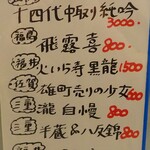 十四代中取り純吟
3000-
福島 飛露喜 800
福井 じいら寿黒龍 1500
佐賀 雄町売りの少女 600
三重 瀧自慢 800
三重 手蔵&八反錦 800